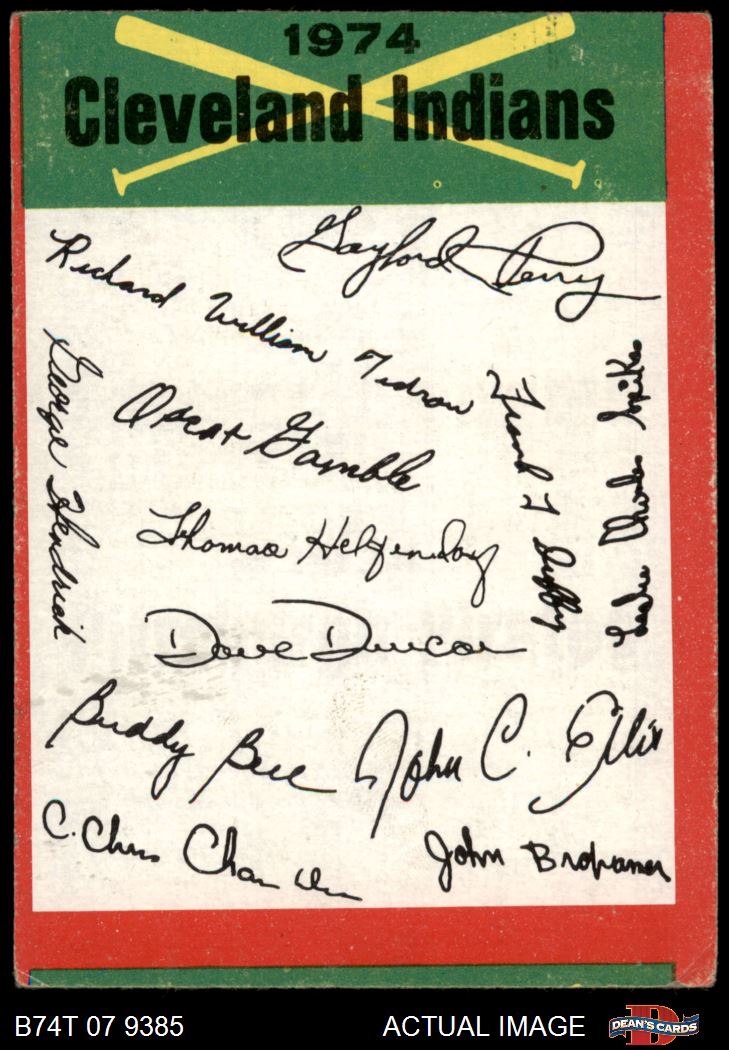 1974
Cleveland Indians
Gaylord Perry
Richard William Tidrow
George Hendrick
Oscar Gamble
Frank T Duffy
Leslie Charles Spikes
Thomas Hilgendorf
Dave Duncan
Buddy Bell
John C. Ellis
C. Chris Chambliss
John Brohamer
B74T 07 9385
ACTUAL IMAGE
DEAN'S CARDS